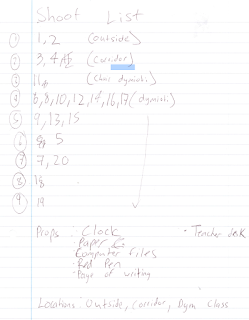 Shoot List
① 1, 2 (outside)
② 3, 4, (corridor)
③ 11,
④ 6, 8, 10, 12, 14, 16, 17
⑤ 9, 13, 15
⑥ 5
⑦ 7, 20
⑧ 18
⑨ 19
Props: Clock • Teacher desk
• Paper
• Computer files
• Red Pen
• Page of writing
Locations: Outside, Corridor, Class